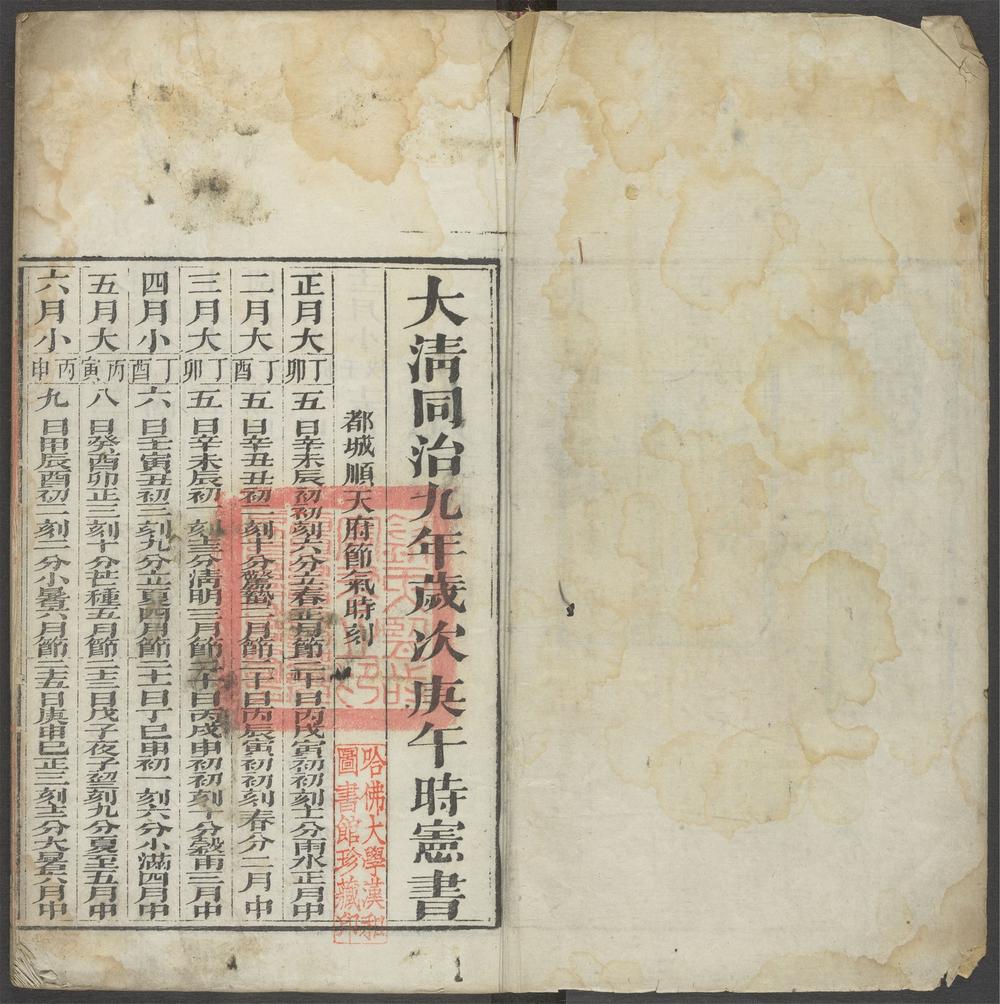 大清同治九年歲次庚午時憲書
都城順天府節氣時刻
正月大 丁卯 五日辛未辰初初刻六分立春正月節二十日丙戌寅初初刻十一分雨水正月中
二月大 丁酉 五日辛丑丑初二刻十分驚蟄二月節二十日丙辰寅初初刻春分二月中
三月大 丁卯 五日辛未辰初一刻十三分清明三月節二十日丙戌申初初刻十分穀雨三月中
四月小 丁酉 六日壬寅丑初三刻九分立夏四月節二十一日丁巳申初一刻六分小滿四月中
五月大 丙寅 八日癸酉卯正三刻十分芒種五月節二十三日戊子夜子初三刻九分夏至五月中
六月小 丙申 九日甲辰酉初二刻二分小暑六月節二十五日庚申巳正三刻十三分大暑六月中
哈佛大學漢和
圖書館珍藏印